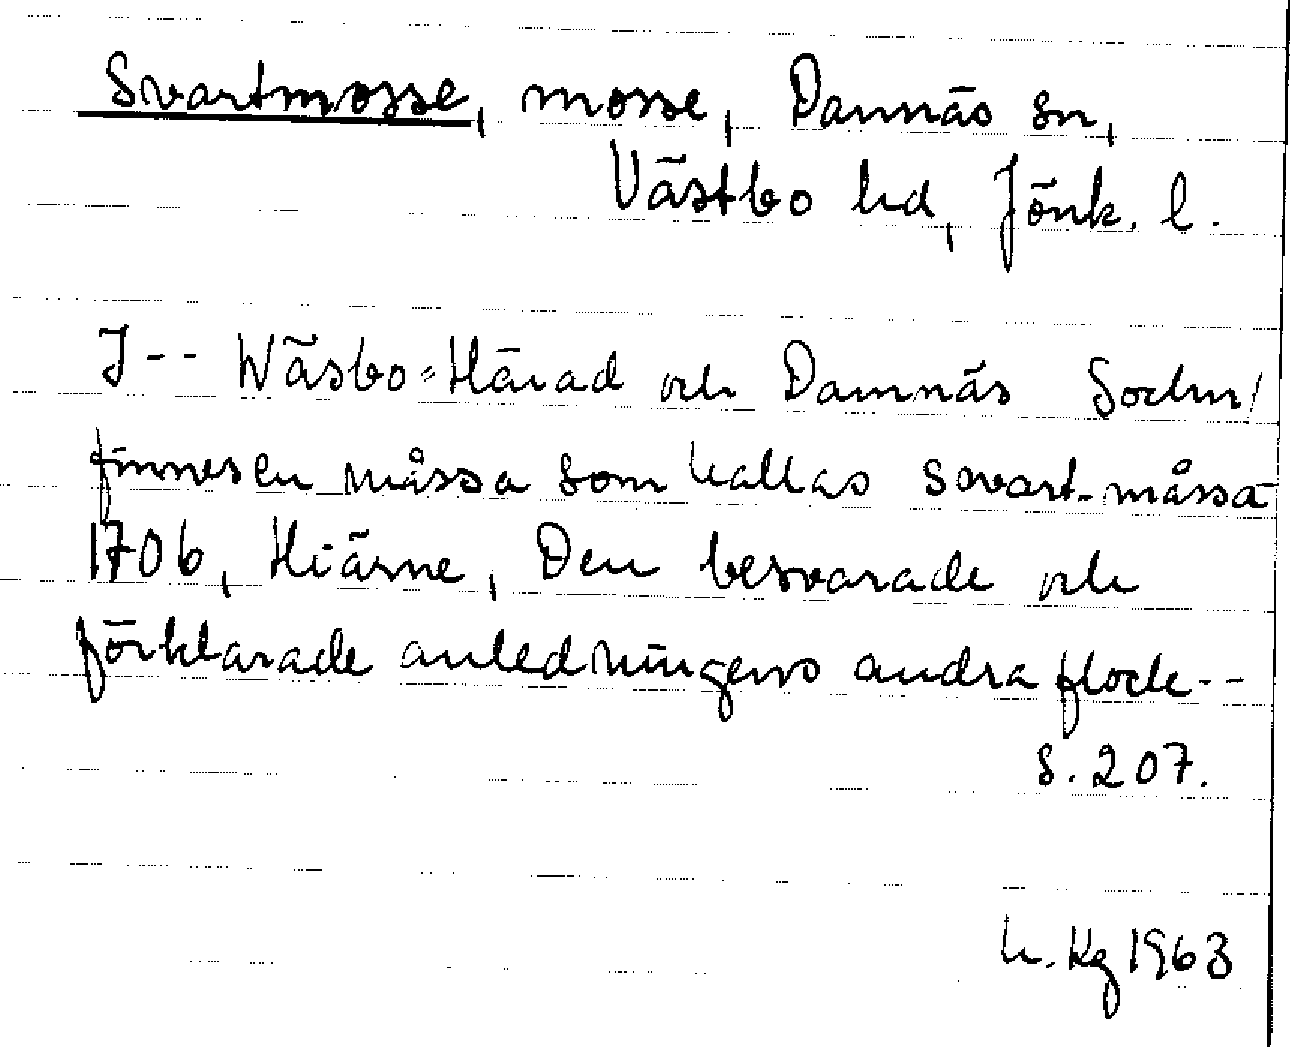 Svartmosse, mosse, Dannäs sn,
Västbo hd, Jönk. l.
I-- Wäsbo=Härad och Dannäs Sochn/
finnes en måssa som kallas Swart-måssa
1706, Hiärne, Den besvarade och
förklarade anledningens andra flock--
S. 207.
Kg 1963